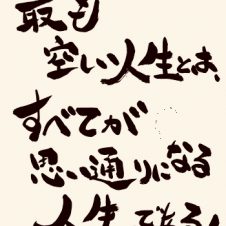 最も
空しい人生とは、
すべてが
思い通りになる
人生である。